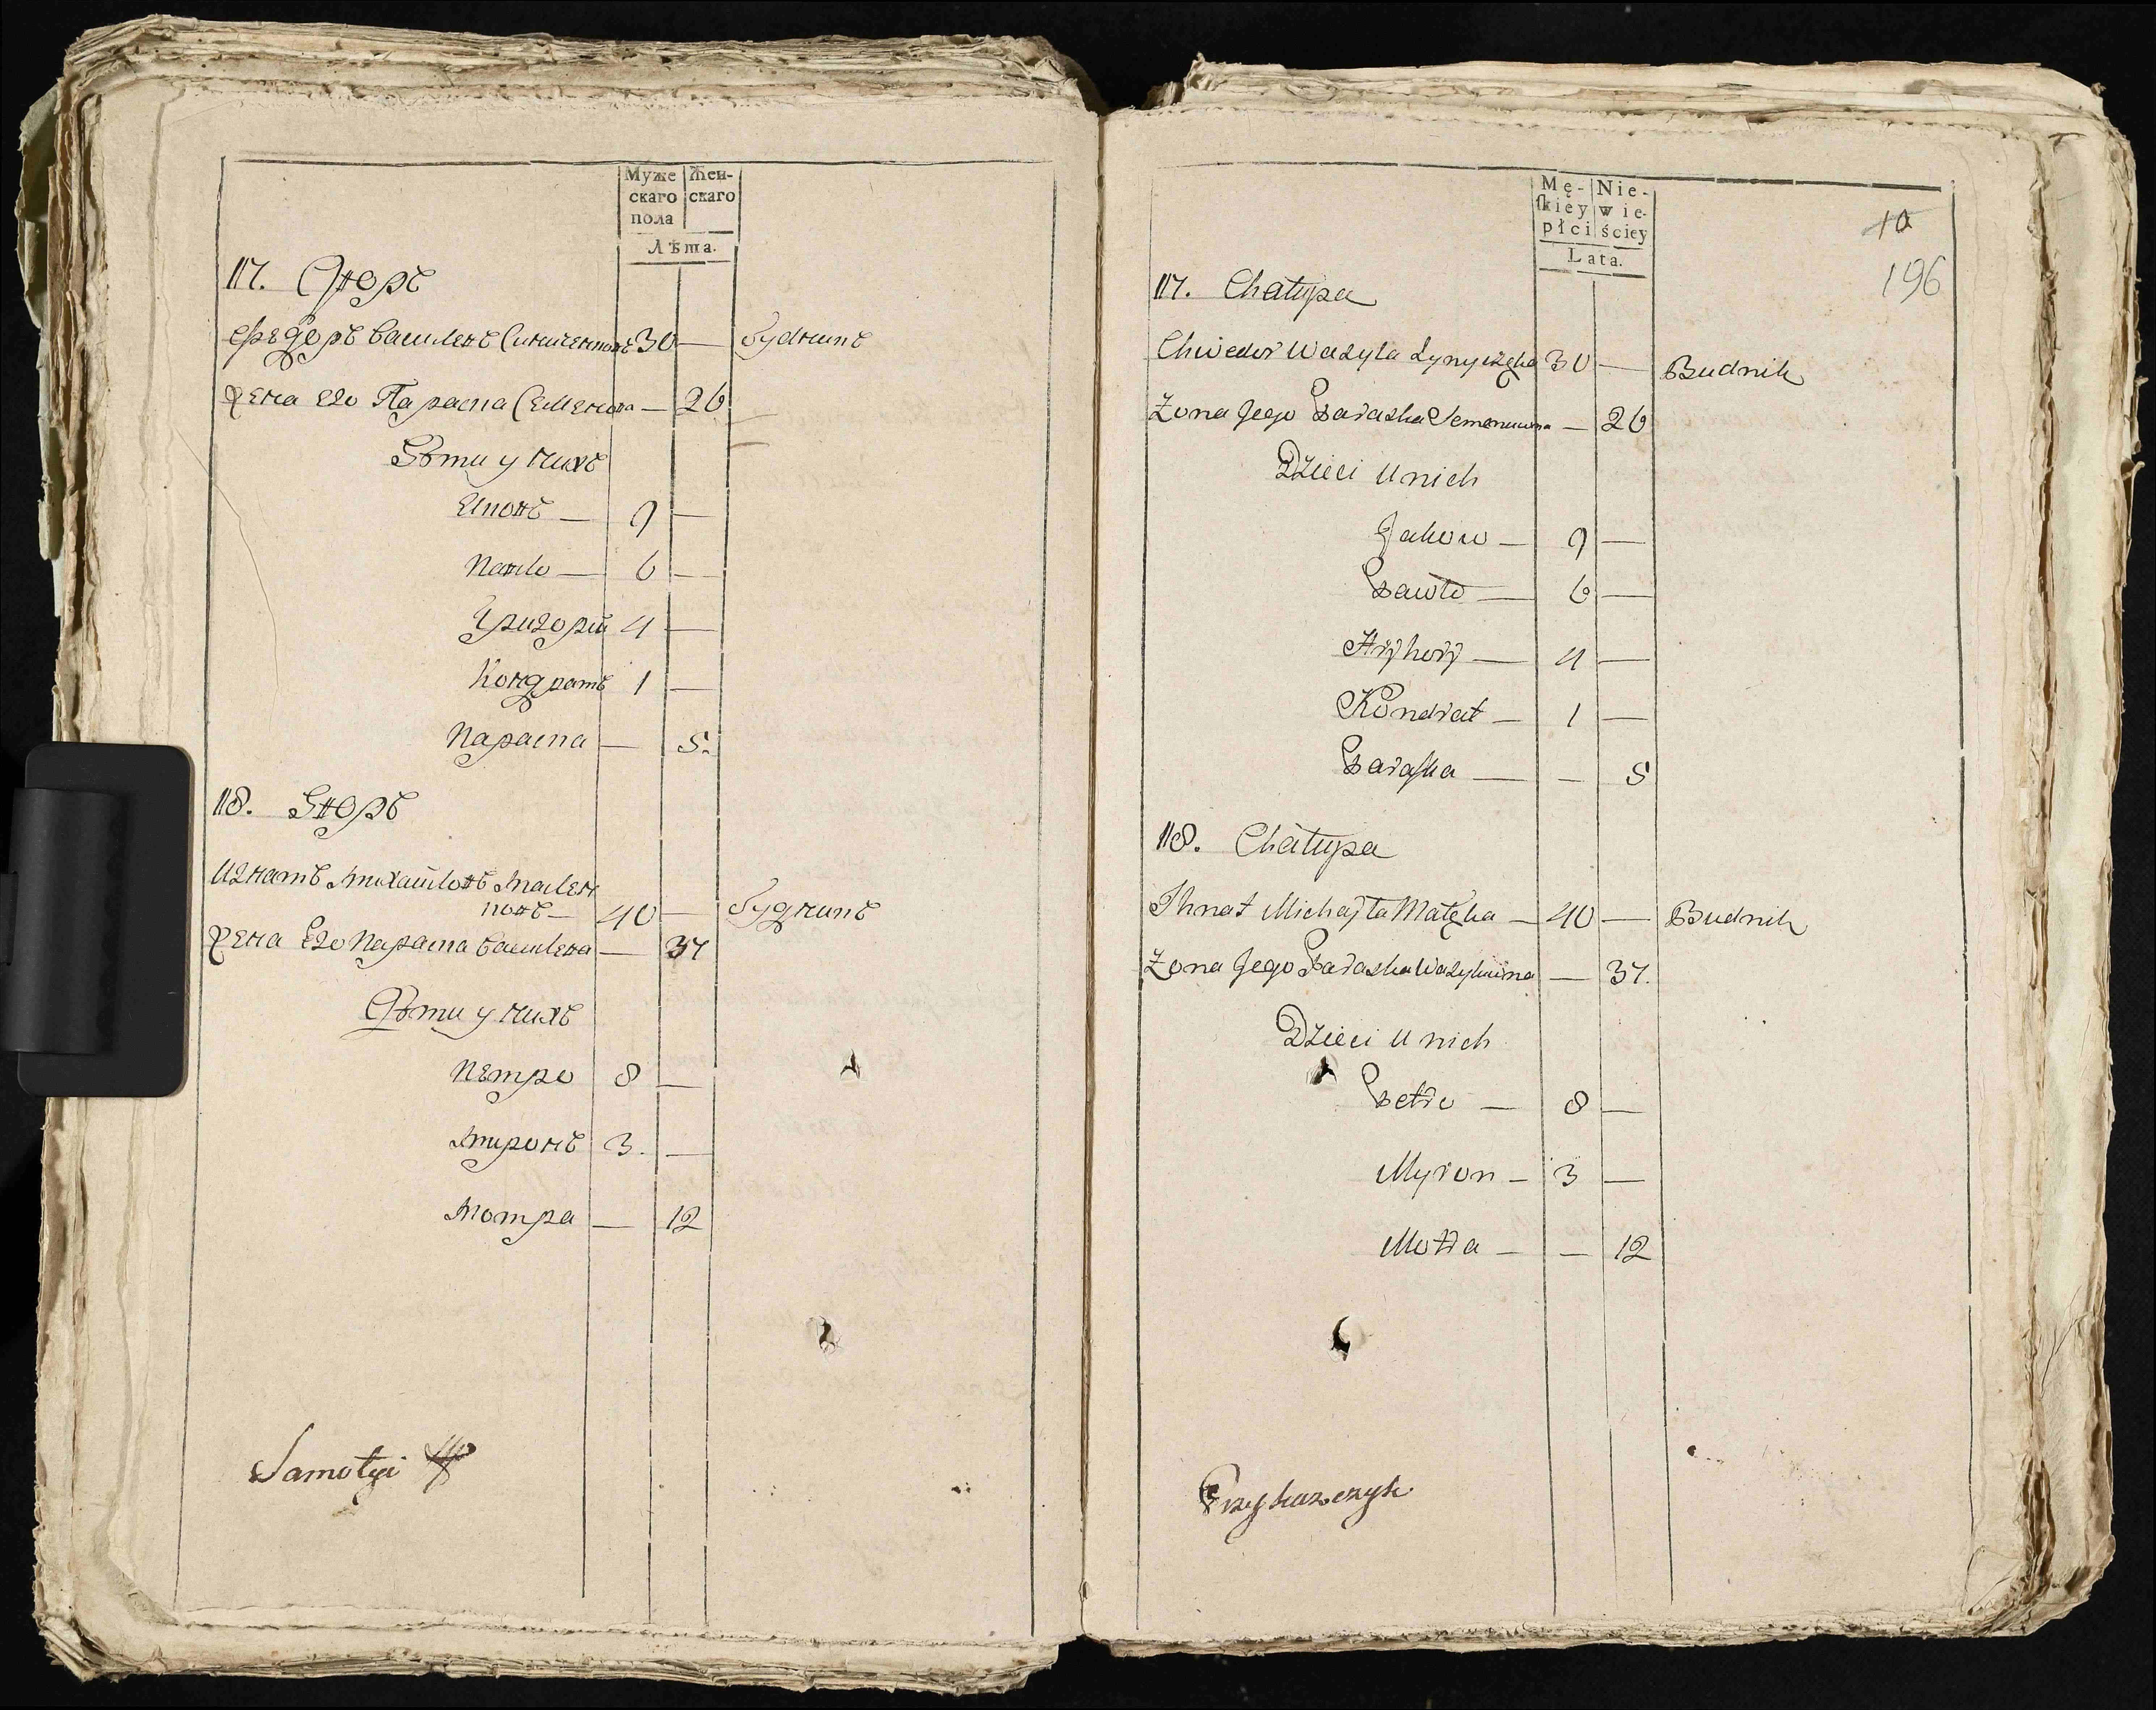 Муже Жен-
скаго скаго
пола
Лѣта.
117. Дворъ
Федоръ Василевъ Синиченковъ 30 — Будникъ
Жена Его Параска Семенова — 26
Дѣти у нихъ
Яковъ — 9 —
Павло — 6 —
Григорій 4 —
Кондратъ 1 —
Параска — 5.
118. Дворъ
Игнатъ Михайловъ Мален
ковъ — 40 — Будникъ
Жена Его Параска Василева — 37
Дѣти у нихъ
Петро 8 —
Миронъ 3. —
Мотра — 12
Samotyi
Mę- Nie-
ſkiey wie-
płci ściey
Lata.
10
196
117. Chałupa
Chwedor Wasyla Synyczęka 30 — Budnik
Zona Jego Paraska Semenuwna — 26
Dzieci u nich
Jakow — 9 —
Pawło — 6 —
Hryhory — 4 —
Kondrat — 1 —
Paraſka — — 5
118. Chałupa
Ihnat Michajła Małęka — 40 — Budnik
Zona Jego Paraska Wasyluwna — 37.
Dzieci u nich
Petro — 8 —
Myron — 3 —
Motra — — 12
Przykazczyk